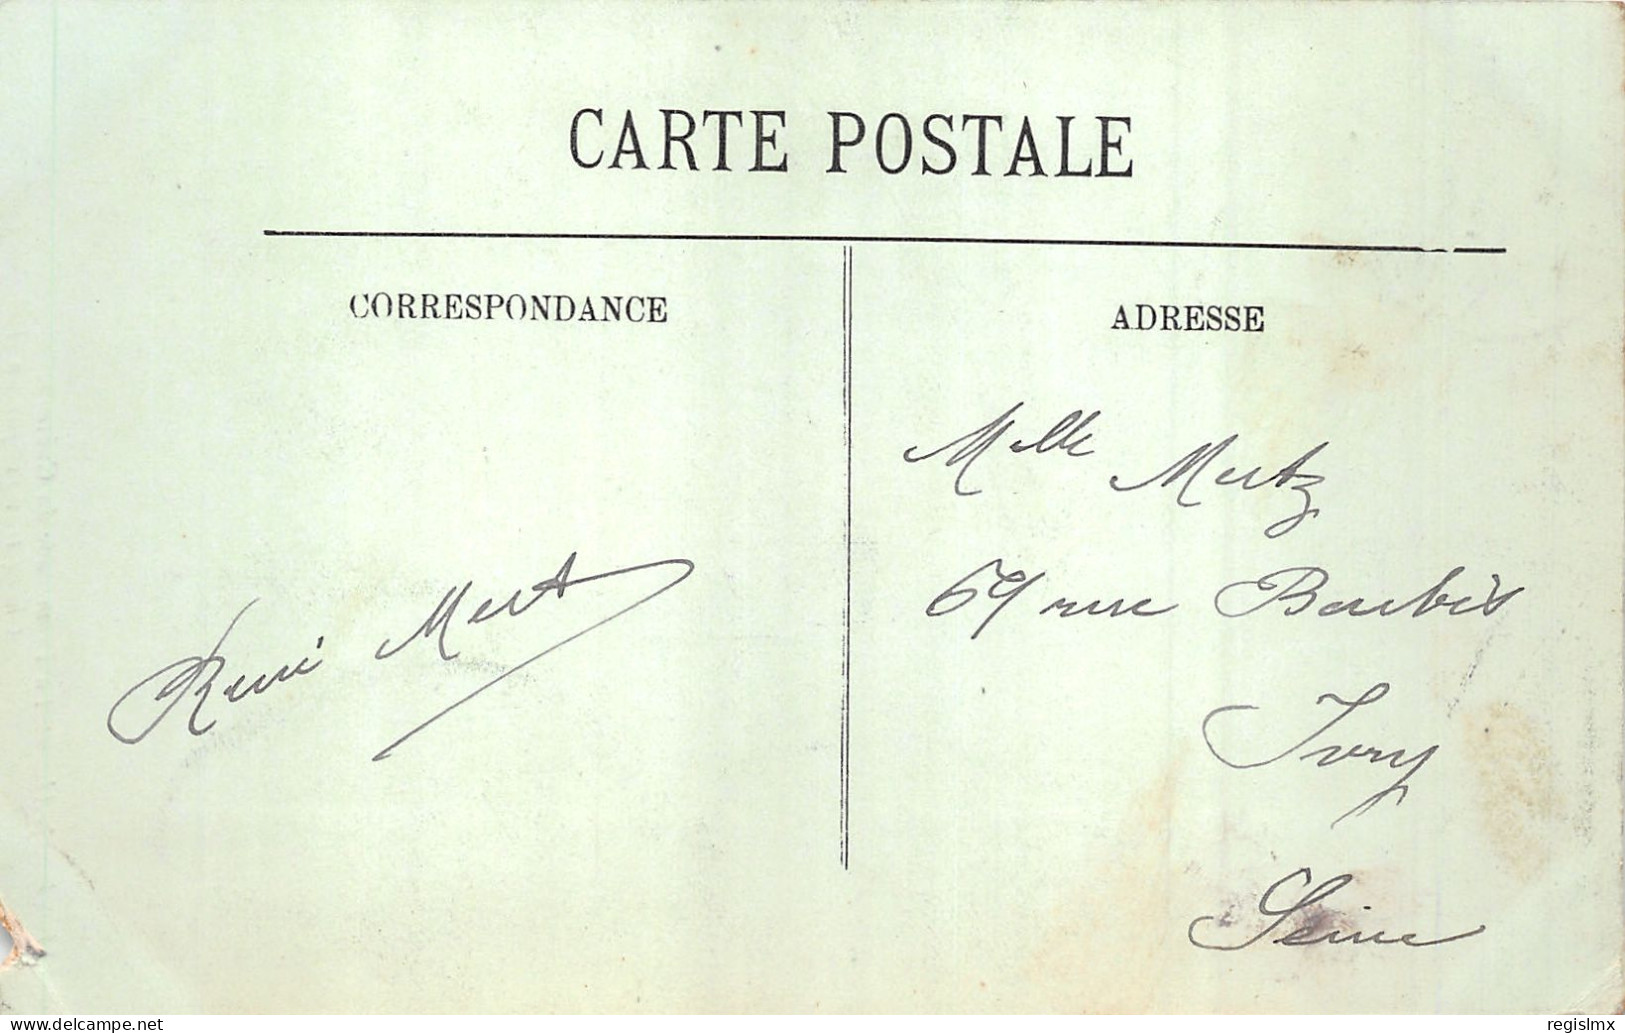 CARTE POSTALE
CORRESPONDANCE
René Mert
ADRESSE
Mlle Mertz
69 rue Barbès
Ivry
Seine
delcampe.net
regislmx